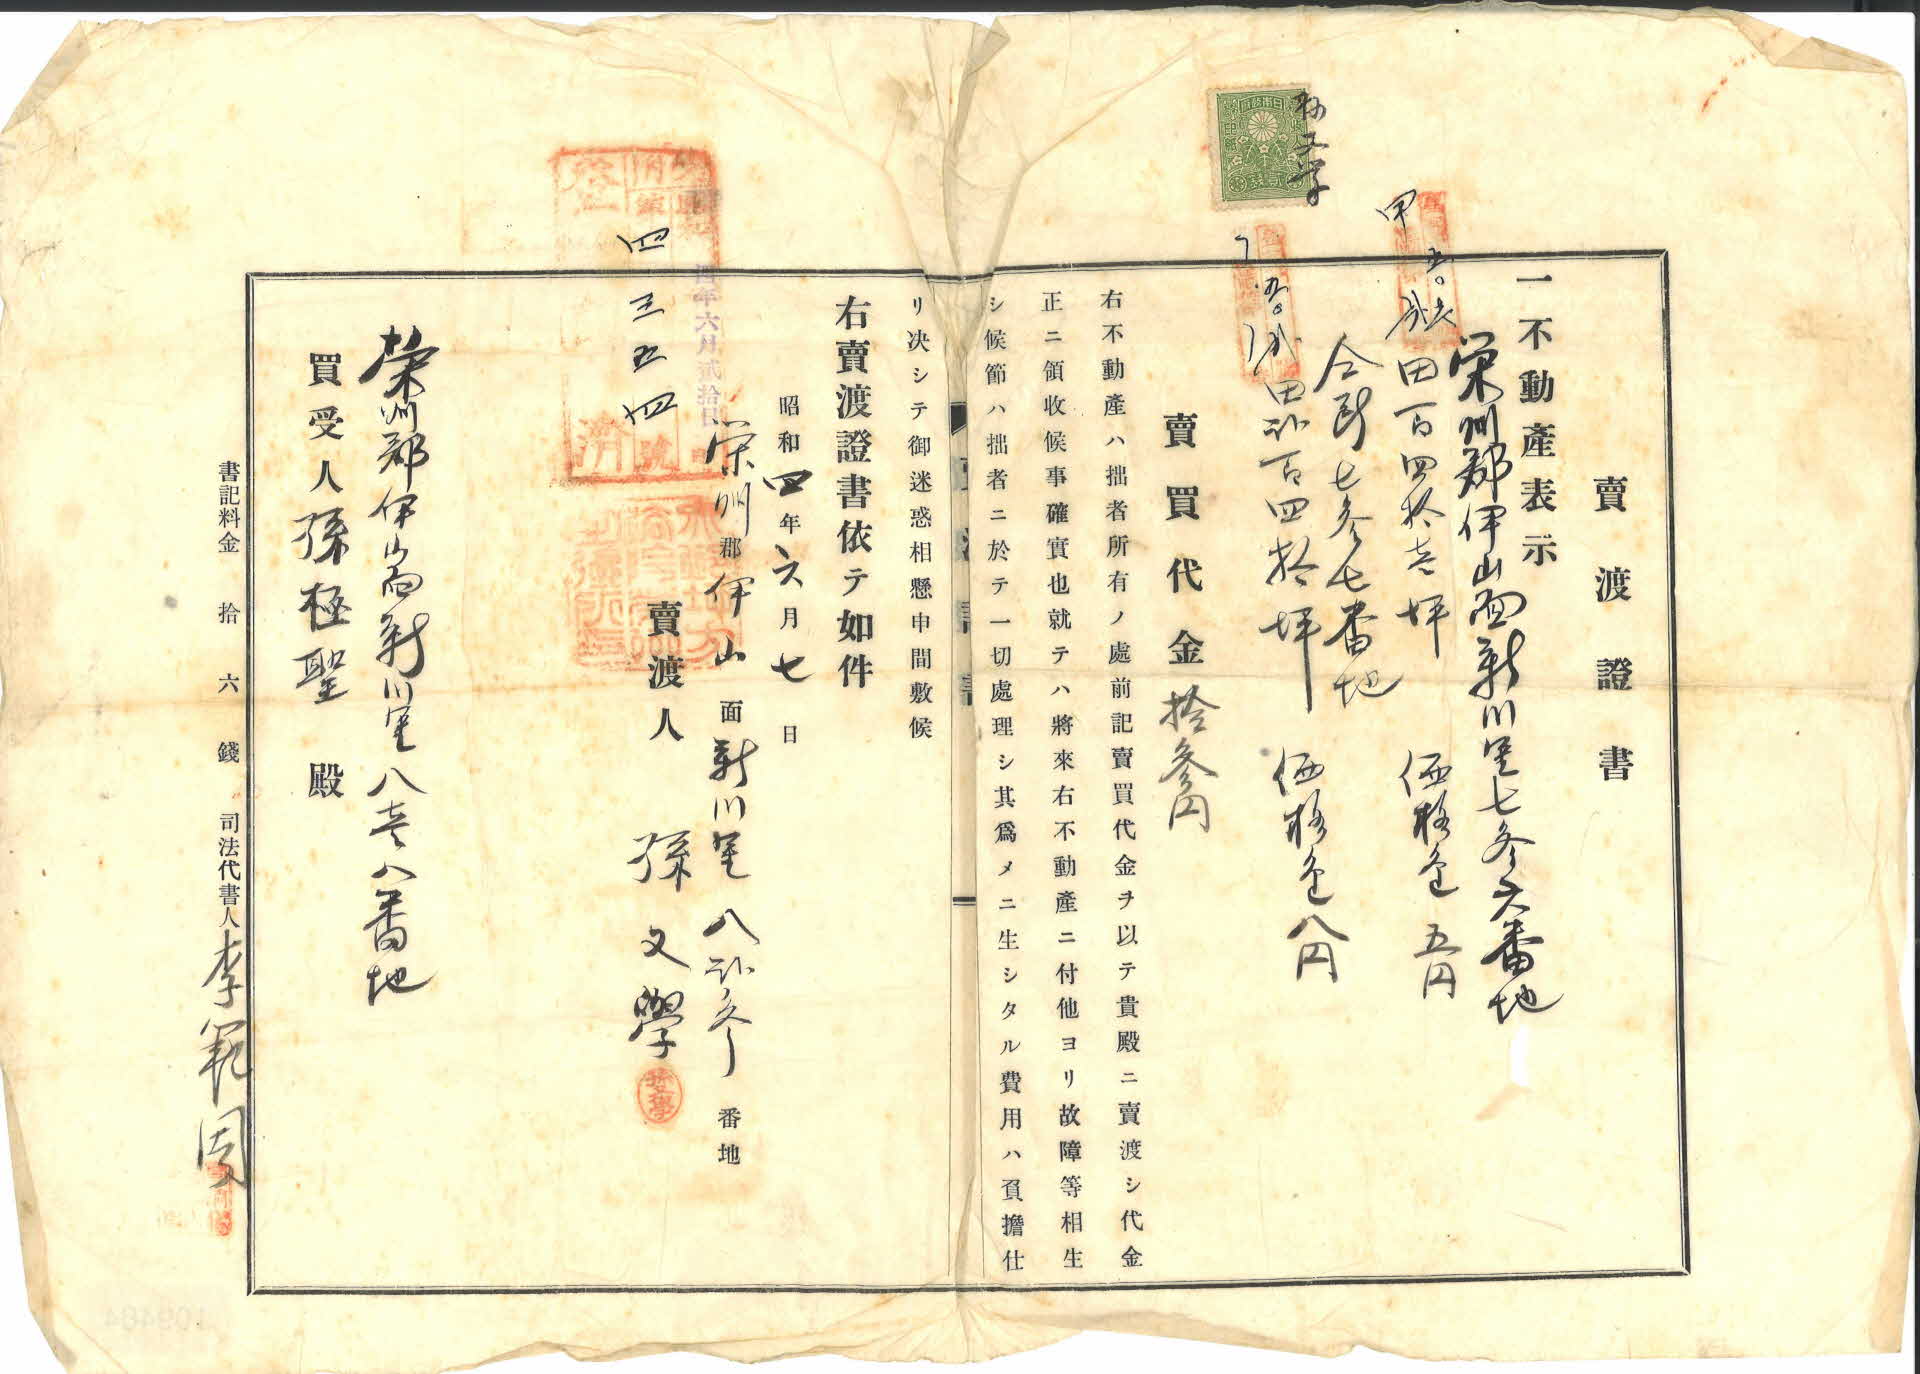 賣渡證書
一不動產表示
榮州郡伊山面新川里七参六番地
田百四拾壱坪 価格金五円
仝所七参七番地
田弐百四拾坪 価格金八円
賣買代金拾参円
右不動產ハ拙者所有ノ處前記賣買代金ヲ以テ貴殿ニ賣渡シ代金
正ニ領收候事確實也就テハ將來右不動產ニ付他ヨリ故障等相生
シ候節ハ拙者ニ於テ一切處理シ其爲メニ生シタル費用ハ負擔仕
リ决シテ御迷惑相懸申間敷候
右賣渡證書依テ如件
昭和四年六月七日
榮州郡伊山面新川里八弐参番地
賣渡人 孫文學
四三五四
四年六月弐拾日
榮州郡伊山面新川里八壱八番地
買受人孫極聖殿
書記料金拾六錢 司法代書人李範周